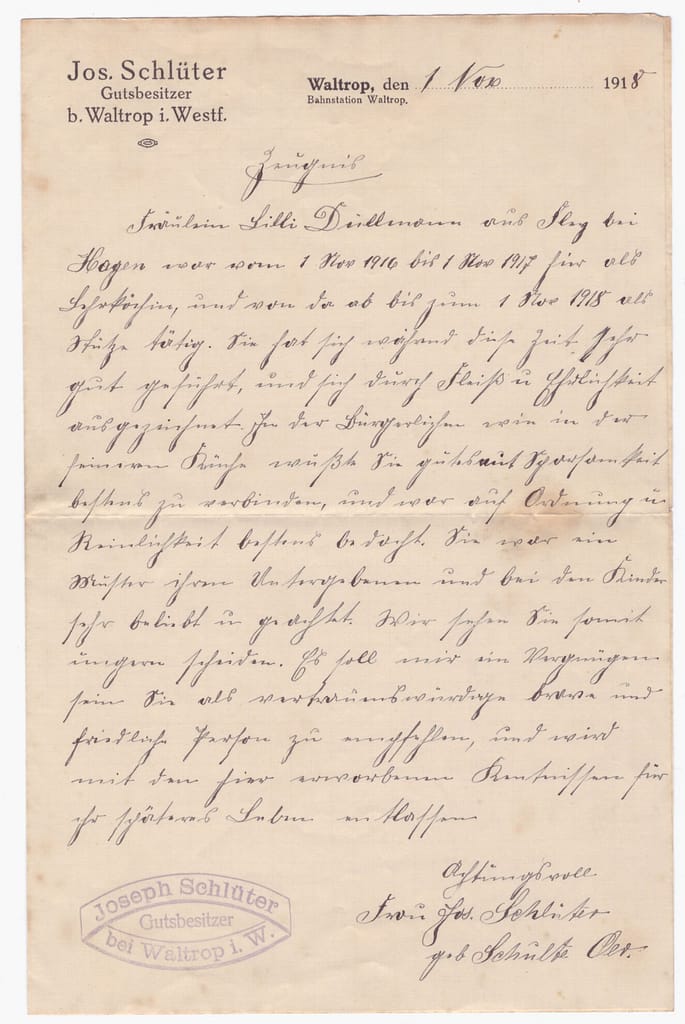 Jos. Schlüter
Gutsbesitzer
b. Waltrop i. Westf.
Waltrop, den 1 Nov 1918
Bahnstation Waltrop.
Zeugnis
Fräulein Lilli Düllmann aus Fley bei
Hagen war vom 1 Nov 1916 bis 1 Nov 1917 hier als
Lehrköchin, und von da ab bis zum 1 Nov 1918 als
Stütze tätig. Sie hat sich während diese Zeit sehr
gut geführt, und sich durch Fleiß u Ehrlichkeit
ausgezeichnet. In der Bürgerlichen wie in der
feineren Küche wußte Sie gutes mit Sparsamkeit
bestens zu verbinden, und war auf Ordnung u
Reinlichkeit bestens bedacht. Sie war ein
Muster ihren Untergebenen und bei den Kinder
sehr beliebt u geachtet. Wir sehen Sie somit
ungern scheiden. Es soll mir ein Vergnügen
sein Sie als vertrauenswürdige brave und
friedliche Person zu empfehlen, und wird
mit den hier erworbenen Kentnissen für
ihr späteres Leben entlassen
Achtungsvoll
Frau Jos. Schlüter
geb Schulte Oer.
Joseph Schlüter
Gutsbesitzer
bei Waltrop i. W.